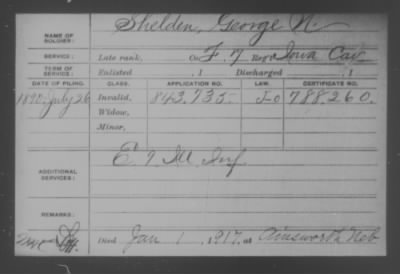 NAME OF SOLDIER: Shelden, George N.
SERVICE: Late rank, Co. F. 7 Reg't Iowa Cav
TERM OF SERVICE: Enlisted , 1 Discharged , 1
DATE OF FILING. CLASS. APPLICATION NO. LAW. CERTIFICATE NO.
1890. July 26 Invalid, 843,735. 788.260.
Widow,
Minor,
ADDITIONAL SERVICES: E. 9 Ill Inf
REMARKS:
Died Jan 1, 1917, at Ainsworth Neb